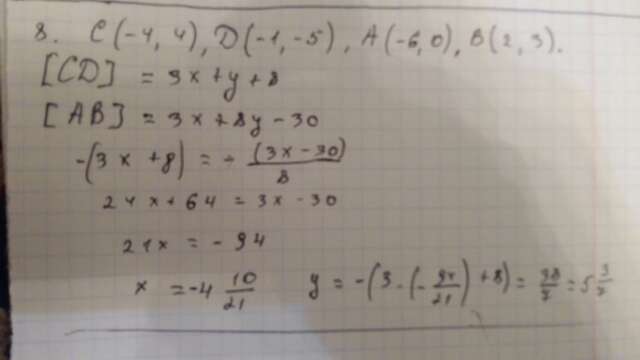 8. C(-4, 4), D(-1, -5), A(-6, 0), B(2, 3).
[CD] = 3x + y + 8
[AB] = 3x + 8y - 30
-(3x + 8) = + (3x - 30)/8
24x + 64 = 3x - 30
21x = -94
x = -4 10/21 y = -(3 · (-94/21) + 8) = 38/7 = 5 3/7